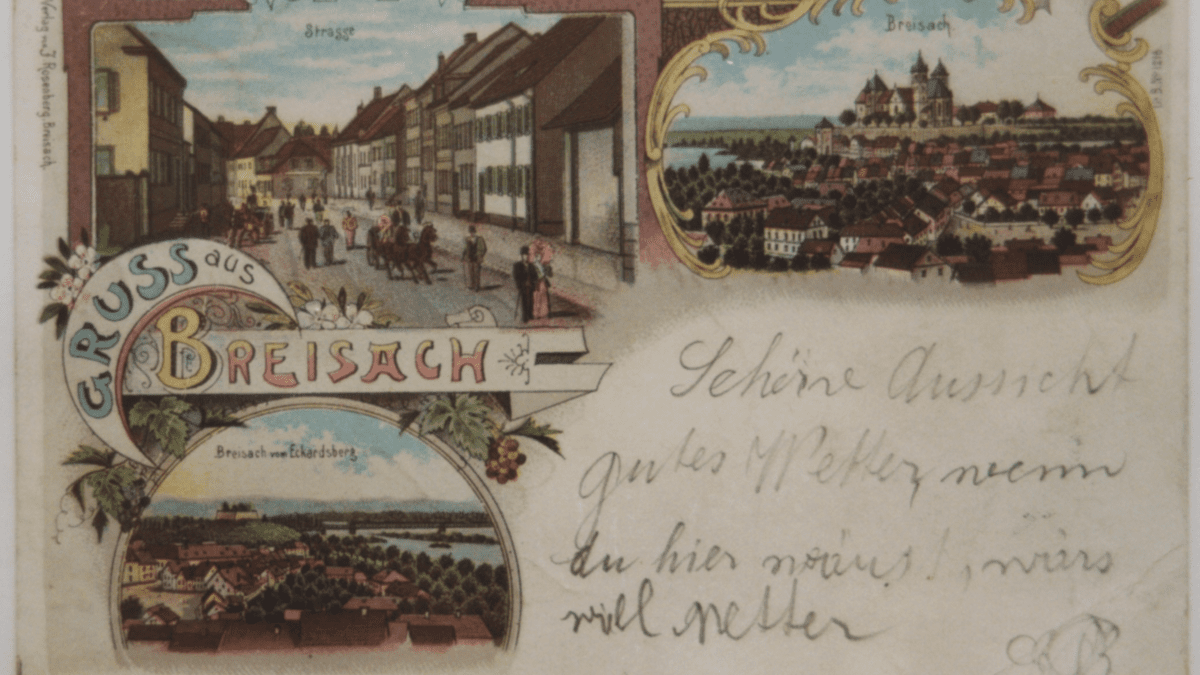 Verlag von J. Rosenberg, Breisach.
Strasse
Breisach
GRUSS aus
BREISACH
Breisach vom Eckardsberg
Schöne Aussicht
gutes Wetter, wenn
du hier wärs!, wärs
viel netter